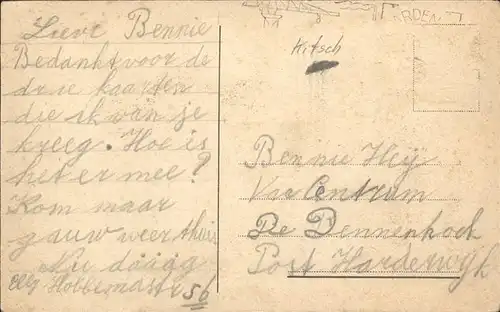 Lieve Bennie
Bedankt voor de
drie kaarten
die ik van je
kreeg. Hoe is
het er mee?
Kom maar
gauw weer thuis
Nu dáágg
Elly Hobbemastr 56
ARDEN
Kitsch
Bennie Heij
Vac Centrum
De Dennenhoek
Post Harderwijk